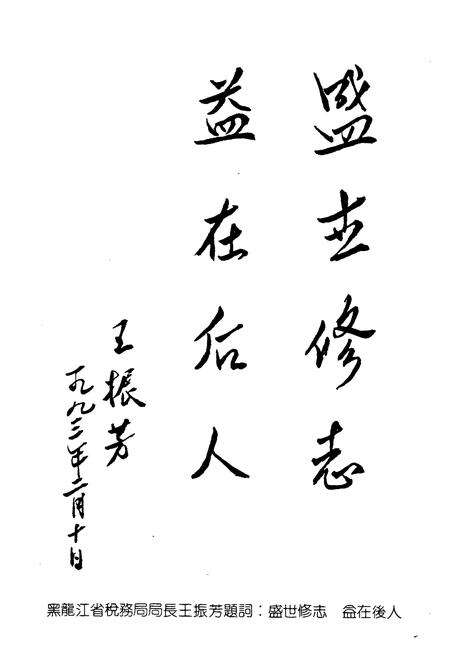 盛世修志
益在后人
王振芳
一九九三年二月十日
黑龍江省稅務局局長王振芳題詞：盛世修志　益在後人